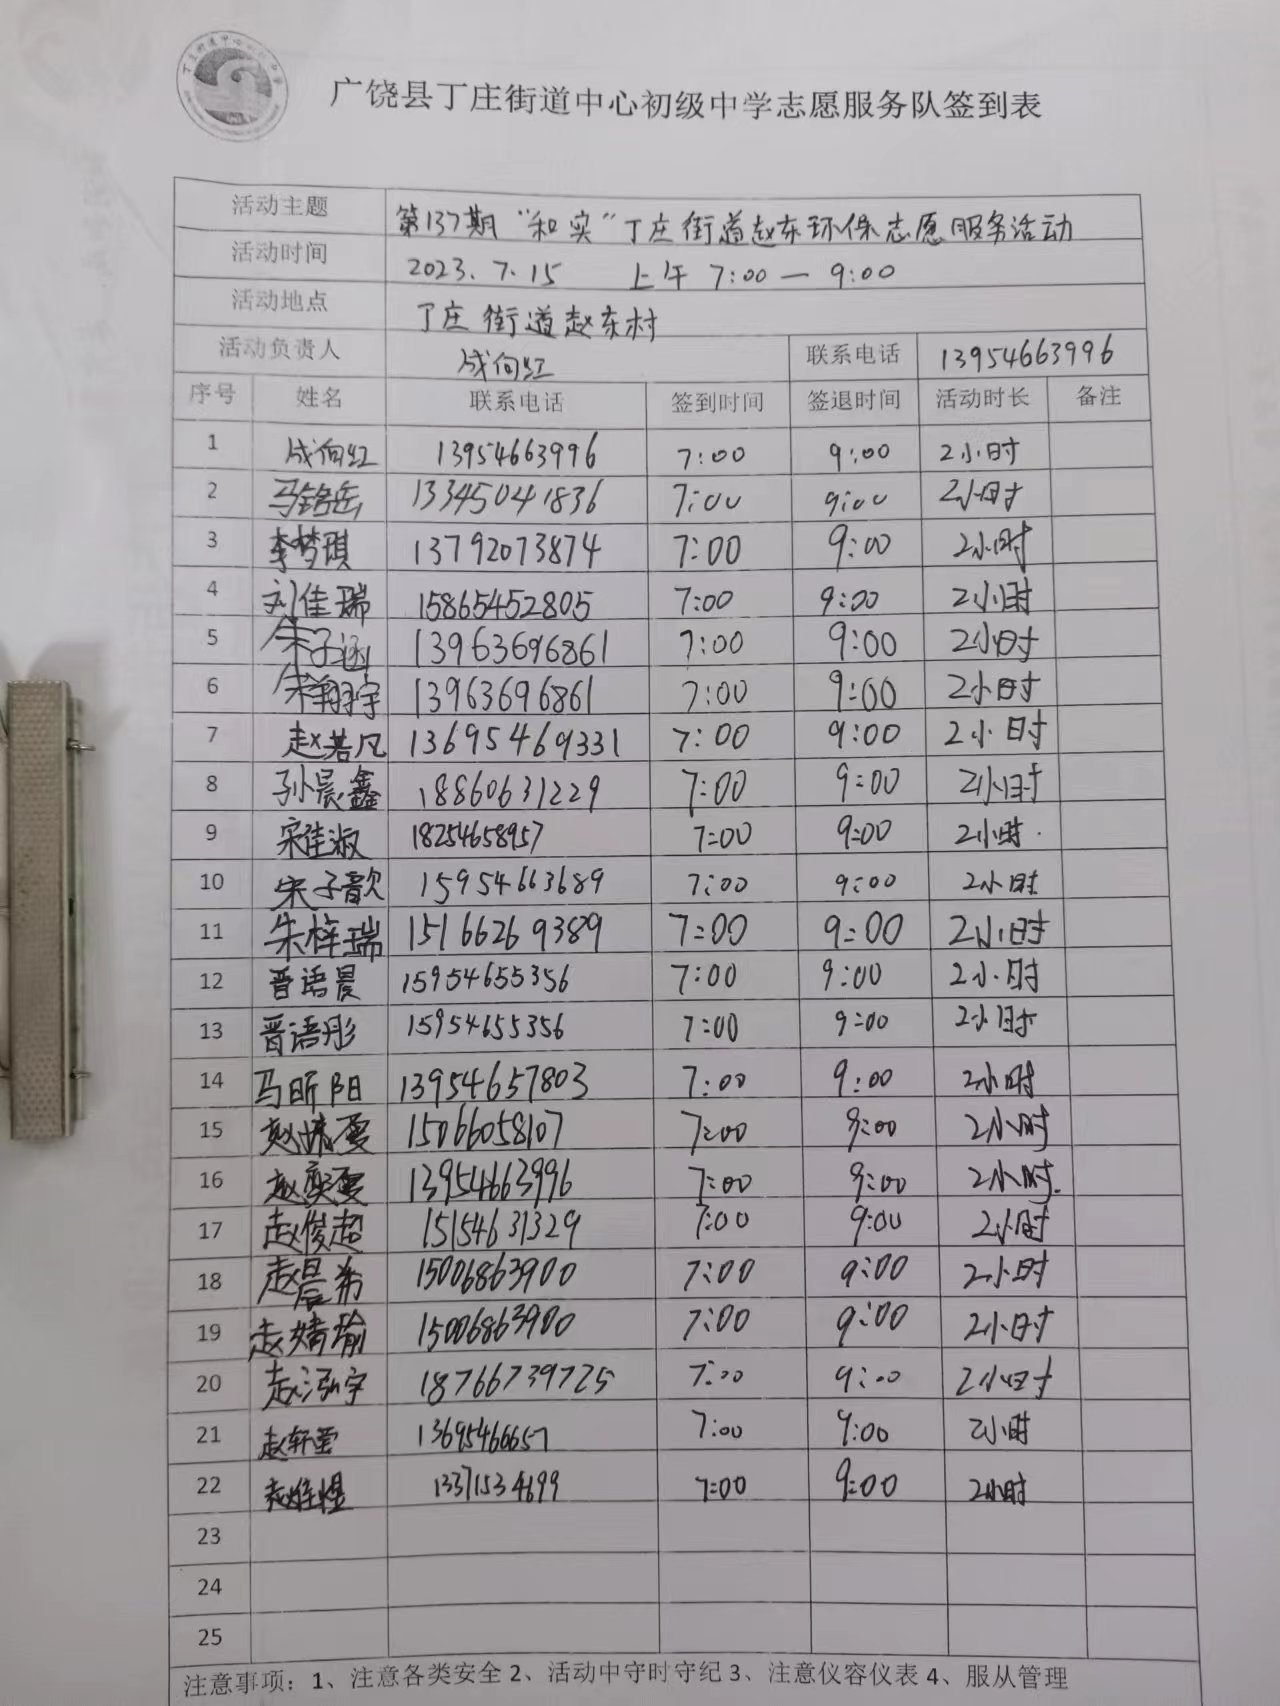 广饶县丁庄街道中心初级中学志愿服务队签到表
活动主题 第137期“和实”丁庄街道赵东环保志愿服务活动
活动时间 2023.7.15 上午 7:00—9:00
活动地点 丁庄街道赵东村
活动负责人 成向红 联系电话 13954663996
序号 姓名 联系电话 签到时间 签退时间 活动时长 备注
1 成向红 13954663996 7:00 9:00 2小时
2 马铭岳 13345041836 7:00 9:00 2小时
3 李梦琪 13792073874 7:00 9:00 2小时
4 刘佳瑞 15865452805 7:00 9:00 2小时
5 朱子涵 13963696861 7:00 9:00 2小时
6 朱翔宇 13963696861 7:00 9:00 2小时
7 赵若凡 13695469331 7:00 9:00 2小时
8 孙晨鑫 18860631229 7:00 9:00 2小时
9 宋佳淑 18254658957 7:00 9:00 2小时
10 宋子歆 15954663689 7:00 9:00 2小时
11 朱梓瑞 15166269389 7:00 9:00 2小时
12 晋语晨 15954655356 7:00 9:00 2小时
13 晋语彤 15954655356 7:00 9:00 2小时
14 马昕阳 13954657803 7:00 9:00 2小时
15 赵 雯 15066058107 7:00 9:00 2小时
16 赵奕雯 13954663996 7:00 9:00 2小时
17 赵俊超 15154631329 7:00 9:00 2小时
18 赵晨希 15006863900 7:00 9:00 2小时
19 赵婧瑜 15006863900 7:00 9:00 2小时
20 赵泓宇 18766739725 7:00 9:00 2小时
21 赵轩 13695466657 7:00 9:00 2小时
22 赵 煜 13371534699 7:00 9:00 2小时
23
24
25
注意事项：1、注意各类安全 2、活动中守时守纪 3、注意仪容仪表 4、服从管理